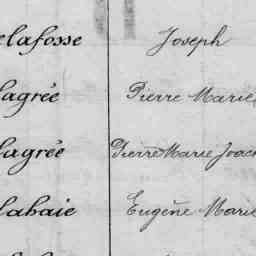 elafosse Joseph
lagrée Pierre Marie
lagrée Pierre Marie Joach
lahaie Eugène Marie